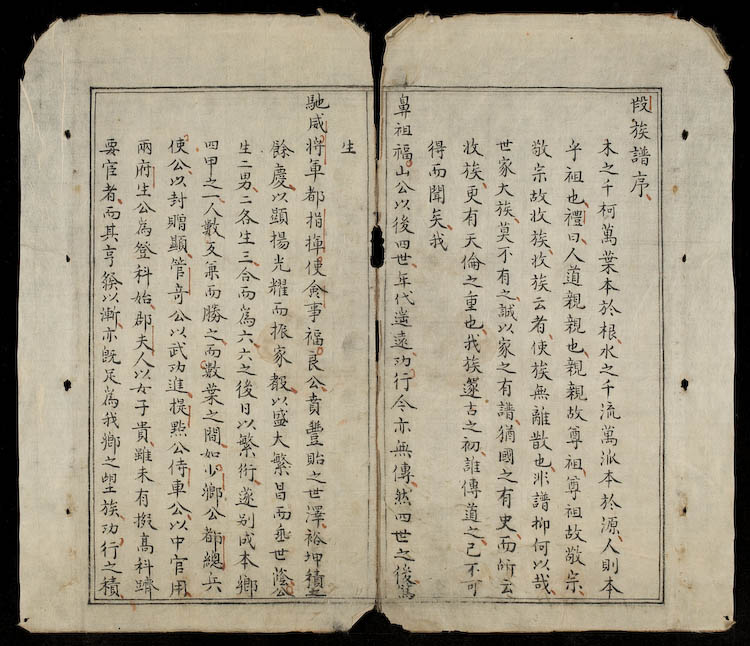 段族譜序
木之千柯萬葉本於根水之千流萬派本於源人則本
乎祖也禮曰人道親親也親親故尊祖尊祖故敬宗
敬宗故收族收族云者使族無離散也非譜抑何以哉
世家大族莫不有之誠以家之有譜猶國之有史而所云
收族更有天倫之重也我族邃古之初誰傳道之已不可
得而聞矣我
鼻祖福山公以後四世年代遺遠功行今亦無傳然四世之後篤
生
馳威將軍都指揮使僉事福良公賁豐貽之世澤裕坤積
餘慶以顯揚光耀而振家毅以盛大繁昌而垂世蔭公
生二男二各生三合而為六六之後日以繁衍遂别成本鄉
四甲之一人數反兼而勝之而數葉之間如少卿公都總兵
使公以封贈顯管奇公以武功進提點公侍車公以中官用
兩府生公為登科始郡夫人以女子貴雖未有掇高科躋
要官者而其亨發以漸亦既足為我鄉之望族功行之積